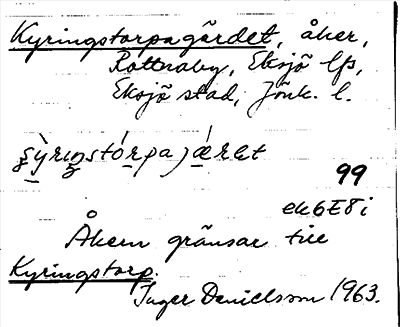 Kyringstorpagärdet, åker,
Rottnaby, Eksjö lfs,
Eksjö stad, Jönk. l.
99
ek6E8i
Åkern gränsar till
Kyringstorp.
Inger Danielsson 1963.